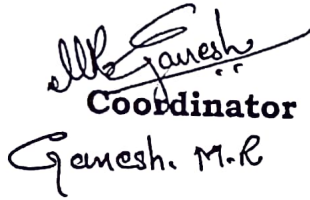 MR Ganesh
Coordinator
Ganesh. M.R